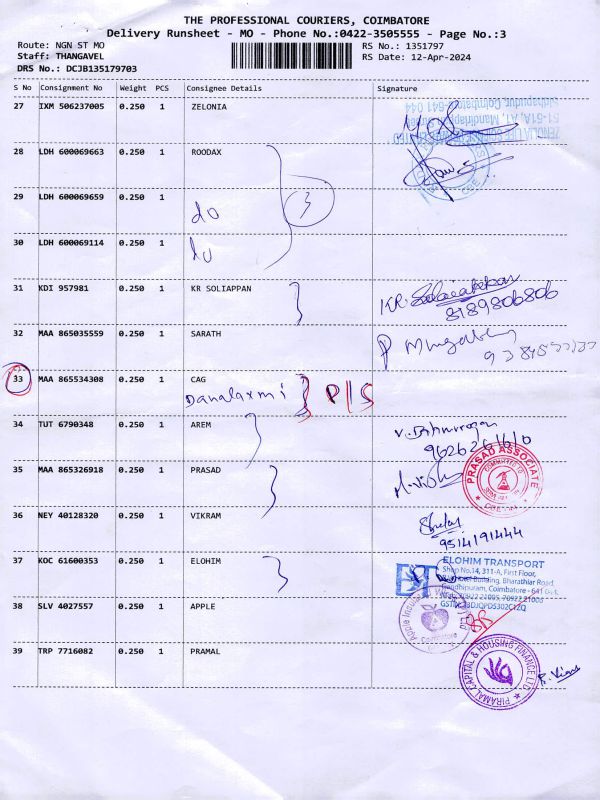 THE PROFESSIONAL COURIERS, COIMBATORE
Delivery Runsheet - MO - Phone No.:0422-3505555 - Page No.:3
Route: NGN ST MO
RS No.: 1351797
Staff: THANGAVEL
RS Date: 12-Apr-2024
DRS No.: DCJB135179703
S No Consignment No Weight PCS Consignee Details Signature
27 IXM 506237005 0.250 1 ZELONIA
28 LDH 600069663 0.250 1 ROODAX
3
29 LDH 600069659 0.250 1
do
30 LDH 600069114 0.250 1
do
31 KDI 957981 0.250 1 KR SOLIAPPAN
KR.
8189806806
32 MAA 865035559 0.250 1 SARATH
33 MAA 865534308 0.250 1 CAG
Danalaxmi P/S
34 TUT 6790348 0.250 1 AREM
35 MAA 865326918 0.250 1 PRASAD
PRASAD ASSOCIATE
36 NEY 40128320 0.250 1 VIKRAM
9514191444
37 KOC 61600353 0.250 1 ELOHIM
ELOHIM TRANSPORT
Shop No.14, 311-A, First Floor,
Building, Bharathiar Road,
Gandhipuram, Coimbatore - 641
38 SLV 4027557 0.250 1 APPLE
Coimbatore
39 TRP 7716082 0.250 1 PRAMAL
PIRAMAL CAPITAL & HOUSING FINANCE LTD